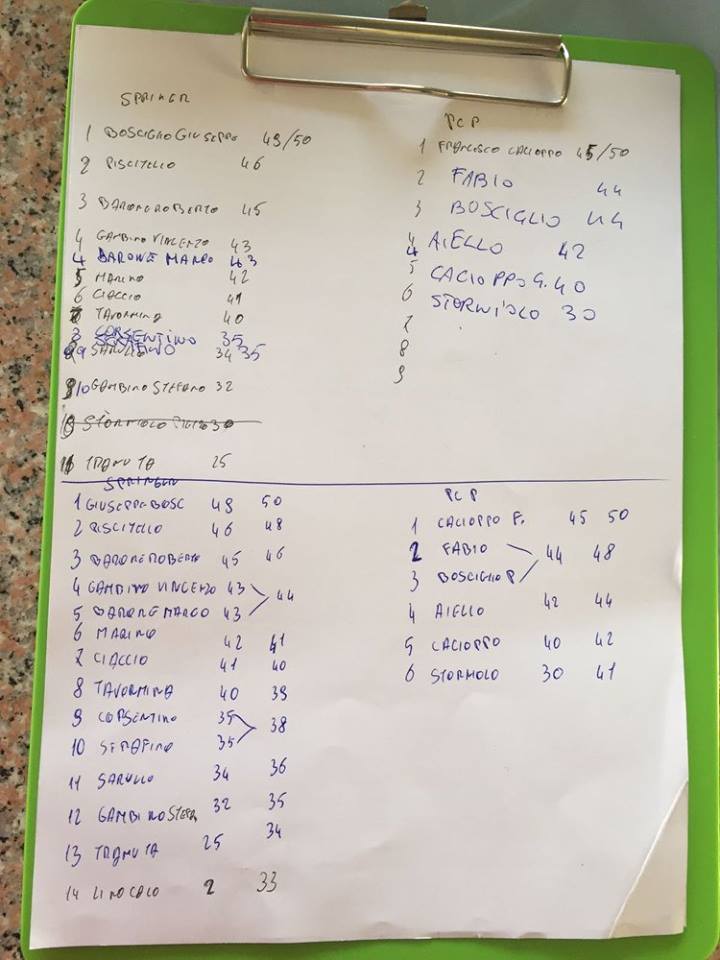 SPRINGER
1 BOSCIGLIO GIUSEPPE 49/50
2 PISCITELLO 46
3 BARONE ROBERTO 45
4 GAMBINO VINCENZO 43
4 BARONE MARCO 43
5 MARINO 42
6 CIACCIO 41
TAVORMINA 40
CORSENTINO 35
34 35
10 GAMBINO STEFANO 32
STORNIOLO 30
11 TRAMUTA 25
PCP
1 FRANCISCO CACIOPPO 45/50
2 FABIO 44
3 BOSCIGLIO 44
4 AIELLO 42
5 CACIOPPO G. 40
6 STORNIOLO 30
7
8
9
SPRINGER
1 GIUSEPPE BOSC 49 50
2 PISCITELLO 46 48
3 BARONE ROBERTO 45 46
4 GAMBINO VINCENZO 43
5 BARONE MARCO 43 44
6 MARINO 42 41
7 CIACCIO 41 40
8 TAVORMINA 40 39
9 CORSENTINO 35
10 SERAFINO 35 38
11 SARULLO 34 36
12 GAMBINO STEFA 32 35
13 TRAMUTA 25 34
14 LINO CALO 2 33
PCP
1 CACIOPPO F. 45 50
2 FABIO 44 48
3 BOSCIGLIO P
4 AIELLO 42 44
5 CACIOPPO 40 42
6 STORNIOLO 30 41